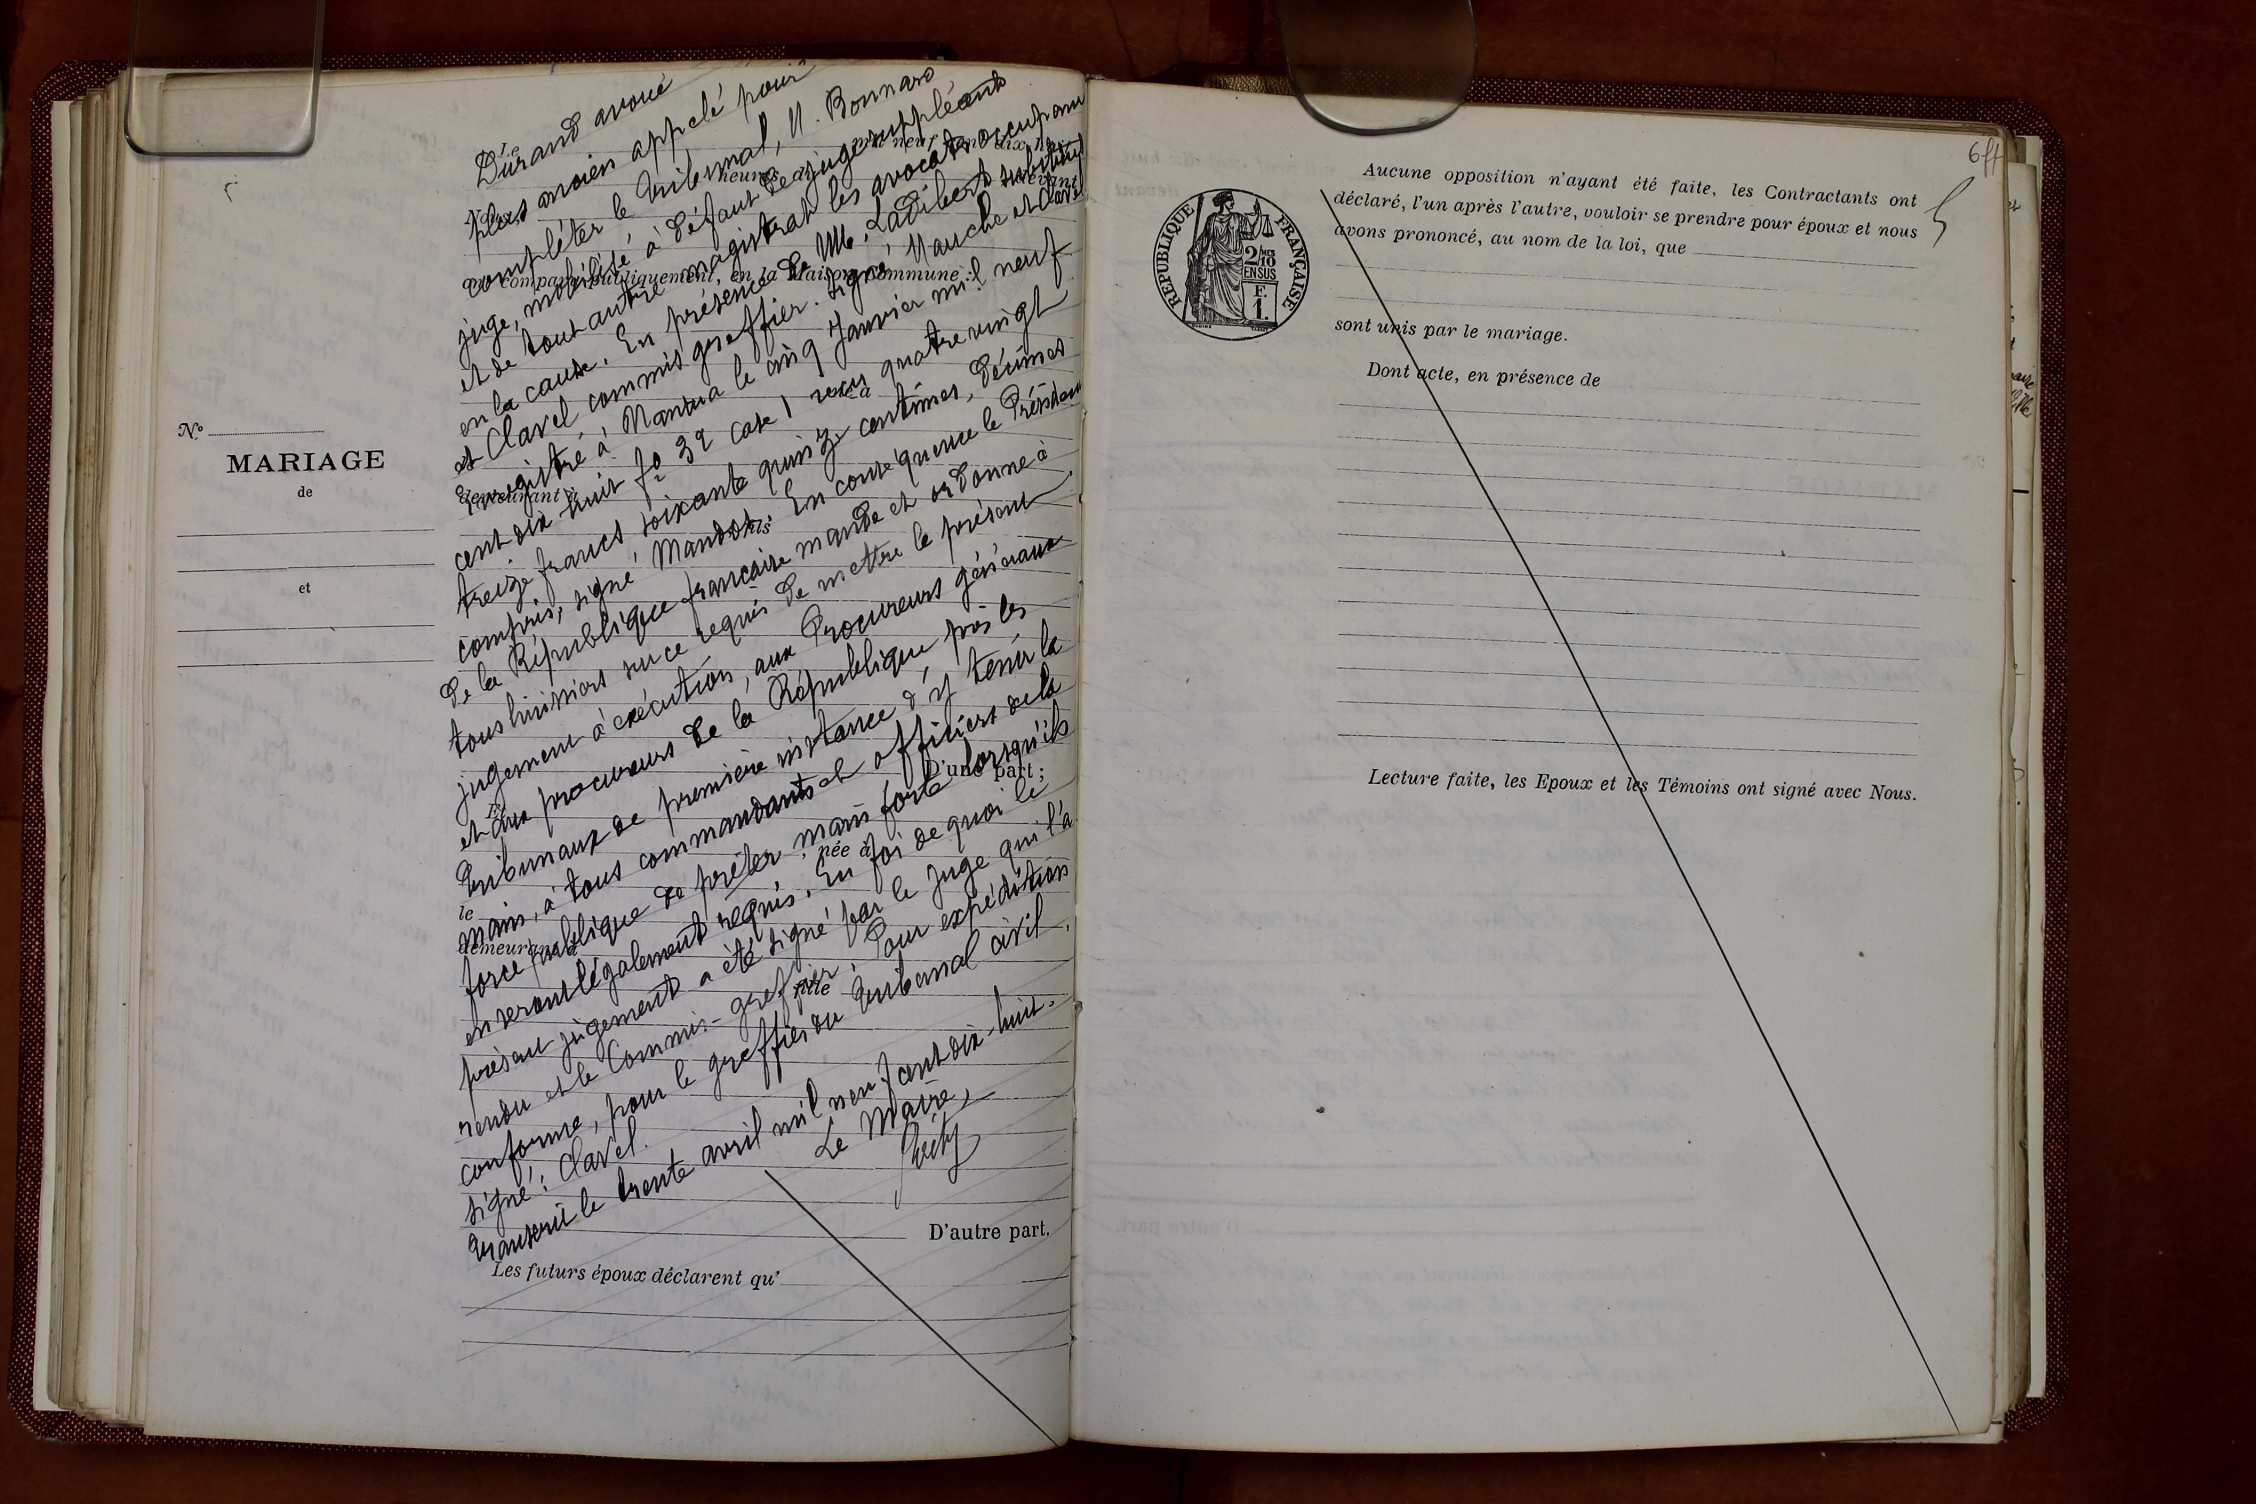 N.º
MARIAGE
de
et
Durand avoué
plus ancien appelé pour
compléter le Tribunal, M. Bonnard
juge, mobilisé à défaut de juge suppléant
et de tout autre magistrat les avocats occupant
en la cause. En présence de MM. Ladibert substitut
et Clavel commis greffier. Signé Mauche et Clavel
Enregistré à Nantua le cinq Janvier mil neuf
cent dix huit fo 32 case 1 reçu quatre vingt
treize francs soixante quinze centimes, décimes
compris, signé Mandot. En conséquence le Président
de la République française mande et ordonne à
tous huissiers sur ce requis de mettre le présent
jugement à exécution, aux Procureurs généraux
et aux procureurs de la République près les
Tribunaux de première instance d'y tenir la
main, à tous commandants et officiers de la
force publique de prêter main forte lorsqu'ils
en seront légalement requis. En foi de quoi le
présent jugement a été signé par le Juge qui l'a
rendu et le Commis-greffier. Pour expédition
conforme, pour le greffier du Tribunal civil.
signé: Clavel.
Transcrit le trente avril mil neuf cent dix-huit.
Le Maire,
Le
mil neuf cent dix-h
heures
devant
ont comparu publiquement, en la Maison commune:
demeurant à
fils
D'une part;
née à
le
demeurant à
fille
D'autre part.
Les futurs époux déclarent qu'
6 ff
REPUBLIQUE FRANÇAISE
2/10 EN SUS
F.
1.
Aucune opposition n'ayant été faite, les Contractants ont
déclaré, l'un après l'autre, vouloir se prendre pour époux et nous
avons prononcé, au nom de la loi, que
sont unis par le mariage.
Dont acte, en présence de
Lecture faite, les Epoux et les Témoins ont signé avec Nous.